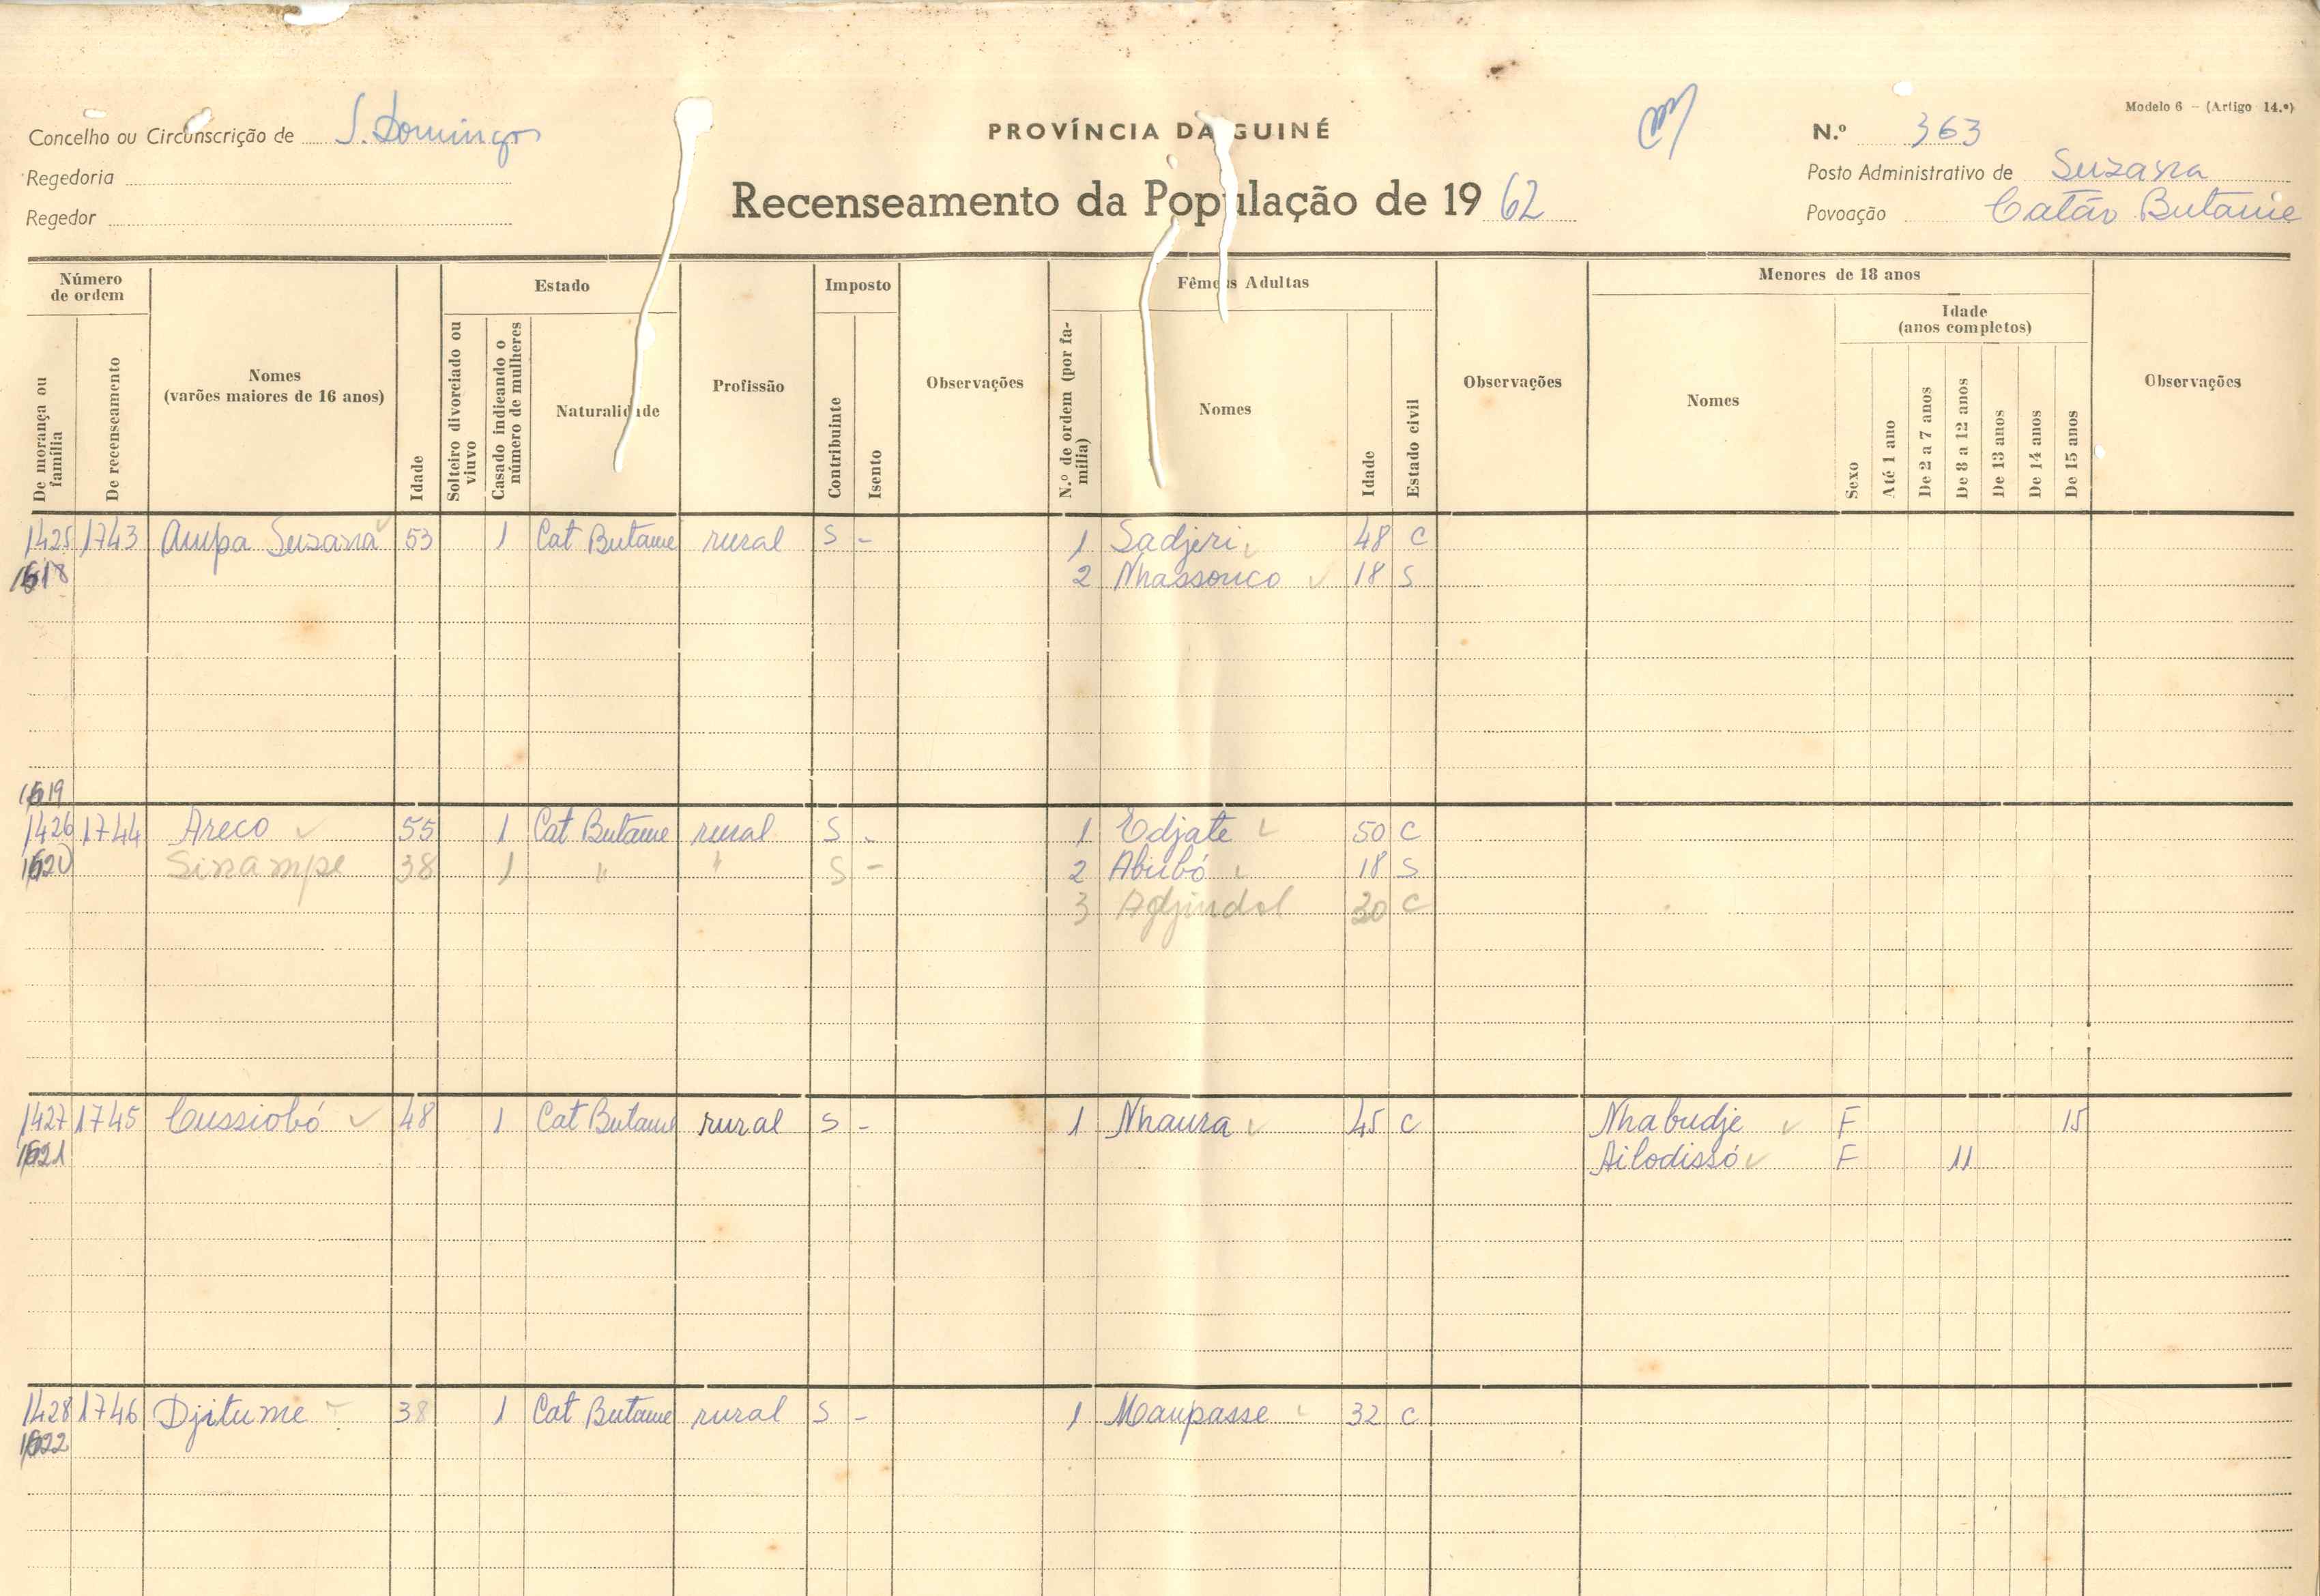 Modelo 6 — (Artigo 14.º)
Concelho ou Circunscrição de S. Domingos
PROVÍNCIA DA GUINÉ
N.º 363
Regedoria
Posto Administrativo de Suzana
Regedor
Recenseamento da População de 1962
Povoação Catão Butame
Número de ordem
De morança ou família
De recenseamento
Nomes
(varões maiores de 16 anos)
Idade
Estado
Solteiro divorciado ou viuvo
Casado indicando o número de mulheres
Naturalidade
Profissão
Imposto
Contribuinte
Isento
Observações
Fêmeas Adultas
N.º de ordem (por família)
Nomes
Idade
Estado civil
Observações
Menores de 18 anos
Nomes
Idade
(anos completos)
Sexo
Até 1 ano
De 2 a 7 anos
De 8 a 12 anos
De 13 anos
De 14 anos
De 15 anos
Observações
1425 1743 Ampa Suzana 53 1 Cat Butame rural S - 1 Sadjeri 48 C
1618 2 Nhassouco 18 S
1619
1426 1744 Areco 55 1 Cat Butame rural S - 1 Edjate 50 C
1620 Sinampe 38 1 " " S - 2 Abubó 18 S
3 30 C
1427 1745 Cussiobó 48 1 Cat Butame rural S - 1 Nhaura 45 C Nhabudje F 15
1621 Ailodissó F 11
1428 1746 Djitume 38 1 Cat Butame rural S - 1 Maupasse 32 C
1622